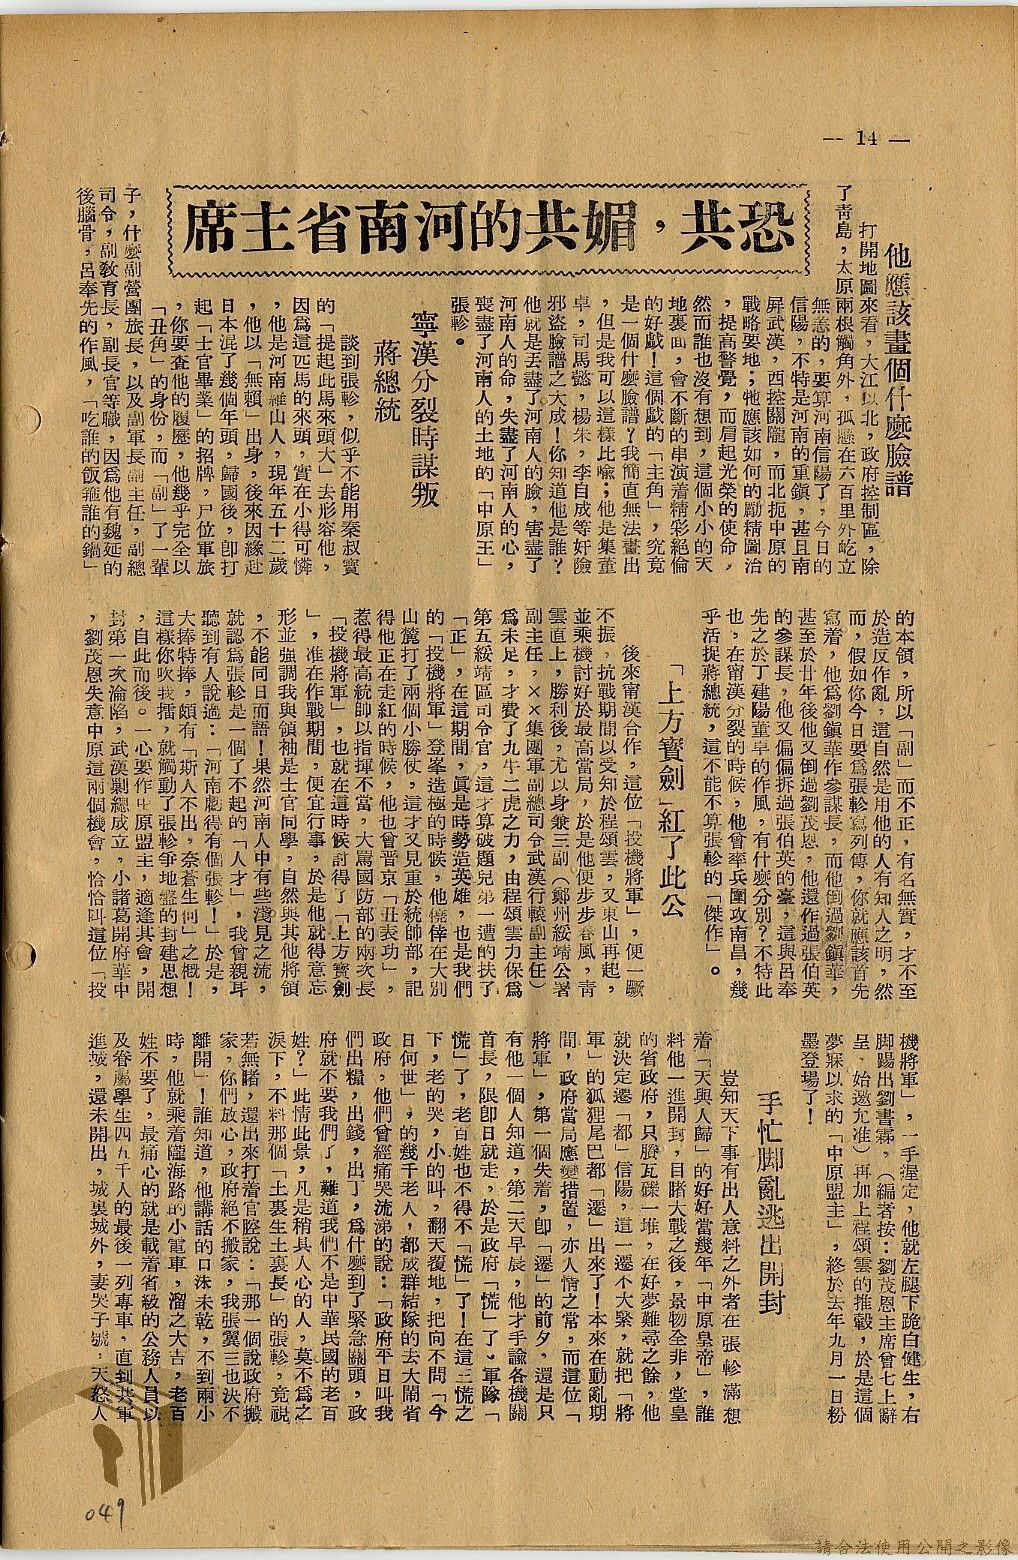 — 14 —
恐共，媚共的河南省主席
他應該畫個什麼臉譜
打開地圖來看，大江以北，政府控制區，除
了青島，太原兩根觸角外，孤懸在六百里外屹立
無恙的，要算河南信陽了，今日的
信陽，不特是河南的重鎮，甚且南
屏武漢，西控關隴，而北扼中原的
戰略要地；牠應該如何的勵精圖治
，提高警覺，而肩起光榮的使命，
然而誰也沒有想到，這個小小的天
地裏面，會不斷的串演着精彩絕倫
的好戲！這個戲的「主角」，究竟
是一個什麼臉譜？我簡直無法畫出
，但是我可以這樣比喻；他是集董
卓，司馬懿，楊朱，李自成等奸險
邪盜臉譜之大成！你知道他是誰？
他就是丟盡了河南人的臉，害盡了
河南人的命，失盡了河南人的心，
喪盡了河南人的土地的「中原王」
張軫。
寧漢分裂時謀叛
蔣總統
談到張軫，似乎不能用秦叔寶
的「提起此馬來頭大」去形容他，
因為這匹馬的來頭，實在小得可憐
，他是河南羅山人，現年五十二歲
，他以「無賴」出身，後來因緣赴
日本混了幾個年頭，歸國後，卽打
起「士官畢業」的招牌，尸位軍旅
，你要查他的履歷，他幾乎完全以
「丑角」的身份，而「副」了一輩
子，什麼副營團旅長，以及副軍長副主任，副總
司令，副教育長，副長官等職，因為他有魏延的
後腦骨，呂奉先的作風，「吃誰的飯砸誰的鍋」
的本領，所以「副」而不正，有名無實，才不至
於造反作亂，這自然是用他的人有知人之明，然
而，假如你今日要為張軫寫列傳，你就應該首先
寫着，他為劉鎮華作參謀長，而他倒過劉鎮華，
甚至於廿年後他又倒過劉茂恩，他還作過張伯英
的參謀長，他又偏偏拆過張伯英的臺，這與呂奉
先之於丁建陽董卓的作風，有什麼分別？不特此
也，在甯漢分裂的時候，他曾率兵圍攻南昌，幾
乎活捉蔣總統，這不能不算張軫的「傑作」。
「上方寶劍」紅了此公
後來甯漢合作，這位「投機將軍」，便一蹶
不振，抗戰期間以受知於程頌雲，又東山再起，
並乘機討好於最高當局，於是他便步步春風，青
雲直上，勝利後，尤以身兼三副（鄭州綏靖公署
副主任，××集團軍副總司令武漢行轅副主任）
為未足，才費了九牛二虎之力，由程頌雲力保為
第五綏靖區司令官，這才算破題兒第一遭的扶了
「正」，在這期間，眞是時勢造英雄，也是我們
的「投機將軍」登峯造極的時候，他僥倖在大別
山麓打了兩個小勝仗，這才又見重於統帥部，記
得他正在走紅的時候，他也曾晉京「丑表功」，
惹得最高統帥以指揮不當，大罵國防部的兩次長
「投機將軍」，也就在這時候討得了「上方寶劍
」，准在作戰期間，便宜行事，於是他就得意忘
形並強調我與領袖是士官同學，自然與其他將領
，不能同日而語！果然河南人中有些淺見之流，
就認為張軫是一個了不起的「人才」，我曾親耳
聽到有人說過：「河南虧得有個張軫！」於是，
大捧特捧，頗有「斯人不出，奈蒼生何」之慨！
這樣你吹我擂，就觸動了張軫爭地盤的封建思想
，自此而後。一心要作中原盟主，適逢其會，開
封第一次淪陷，武漢剿總成立，小諸葛開府華中
，劉茂恩失意中原這兩個機會，恰恰叫這位「投
機將軍」，一手握定，他就左腿下跪白健生，右
脚踢出劉書霖，（編者按：劉茂恩主席曾七上辭
呈，始邀允准）再加上程頌雲的推轂，於是這個
夢寐以求的「中原盟主」，終於去年九月一日粉
墨登場了！
手忙脚亂逃出開封
豈知天下事有出人意料之外者在張軫滿想
着「天與人歸」的好好當幾年「中原皇帝」，誰
料他一進開封，目睹大戰之後，景物全非，堂皇
的省政府，只賸瓦礫一堆，在好夢難尋之餘，他
就決定遷「都」信陽，這一遷不大緊，就把「將
軍」的狐狸尾巴都「遷」出來了！本來在動亂期
間，政府當局應變措置，亦人情之常，而這位「
將軍」，第一個失着，卽「遷」的前夕，還是只
有他一個人知道，第二天早晨，他才手諭各機關
首長，限卽日就走，於是政府「慌」了。軍隊「
慌」了，老百姓也不得不「慌」了！在這三慌之
下，老的哭，小的叫，翻天覆地，把向不問「今
日何世」，的幾千老人，都成群結隊的去大鬧省
政府，他們曾經痛哭流涕的說：「政府平日叫我
們出糧，出錢，出丁，為什麼到了緊急關頭，政
府就不要我們了，難道我們不是中華民國的老百
姓？」此情此景，凡是稍具人心的人，莫不為之
淚下，不料那個「土裏生土裏長」的張軫，竟視
若無睹，還出來打着官腔說：「那一個說政府搬
家，你們放心，政府絕不搬家，我張翼三也決不
離開」！誰知道，他講話的口沫未乾，不到兩小
時，他就乘着隴海路的小電車，溜之大吉，老百
姓不要了，最痛心的就是載着省級的公務人員以
及眷屬學生四五千人的最後一列專車，直到共軍
進城，還未開出，城裏城外，妻哭子號，天怒人
049
請合法使用公開之影像